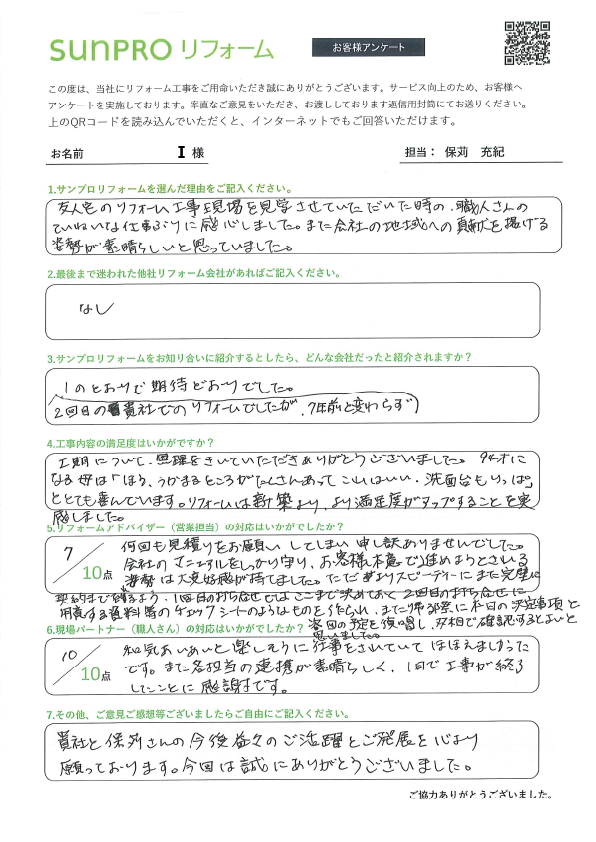 SUNPRO リフォーム
お客様アンケート
この度は、当社にリフォーム工事をご用命いただき誠にありがとうございます。サービス向上のため、お客様へ
アンケートを実施しております。率直なご意見をいただき、お渡ししております返信用封筒にてお送りください。
上のQRコードを読み込んでいただくと、インターネットでもご回答いただけます。
お名前 I 様 担当： 保苅 充紀
1.サンプロリフォームを選んだ理由をご記入ください。
友人宅のリフォーム工事現場を見学させていただいた時の、職人さんの
ていねいな仕事ぶりに感心しました。また会社の地域への貢献を掲げる
姿勢が素晴らしいと思っていました。
2.最後まで迷われた他社リフォーム会社があればご記入ください。
なし
3.サンプロリフォームをお知り合いに紹介するとしたら、どんな会社だったと紹介されますか？
1のとおりで期待どおりでした。
2回目の貴社でのリフォームでしたが、7年前と変わらず
4.工事内容の満足度はいかがですか？
工期について、無理をきいていただきありがとうございました。94才に
なる母は「ほう、うかまるところがたくさんあってこりはいい、洗面台もりっぱ」
ととても喜んでいます。リフォームは新築より、より満足度がアップすることを実
感しました。
5.リフォームアドバイザー（営業担当）の対応はいかがでしたか？
7／10点
何回も見積りをお願いしてしまい申し訳ありませんでした。
会社のマニュアルをしっかり守り、お客様本意で進めようとされる
姿勢は大変好感が持てました。ただ よりスピーディーにまた完璧に
契約まで 1回目の打ち合せではここまで決めておく 2回目の打ち合せに
用意する資料等のチェックシートのようなものを作るとか、また帰る際に本日の決定事項と
次回の予定を復唱し、双方で確認するとよいと
思いました。
6.現場パートナー（職人さん）の対応はいかがでしたか？
10／10点
和気あいあいと楽しそうに仕事をされていてほほえましかった
です。また各担当の連携が素晴らしく、1回で工事が終了
したことに感謝です。
7.その他、ご意見ご感想等ございましたらご自由にご記入ください。
貴社と保苅さんの今後益々のご活躍とご発展を心より
願っております。今回は誠にありがとうございました。
ご協力ありがとうございました。